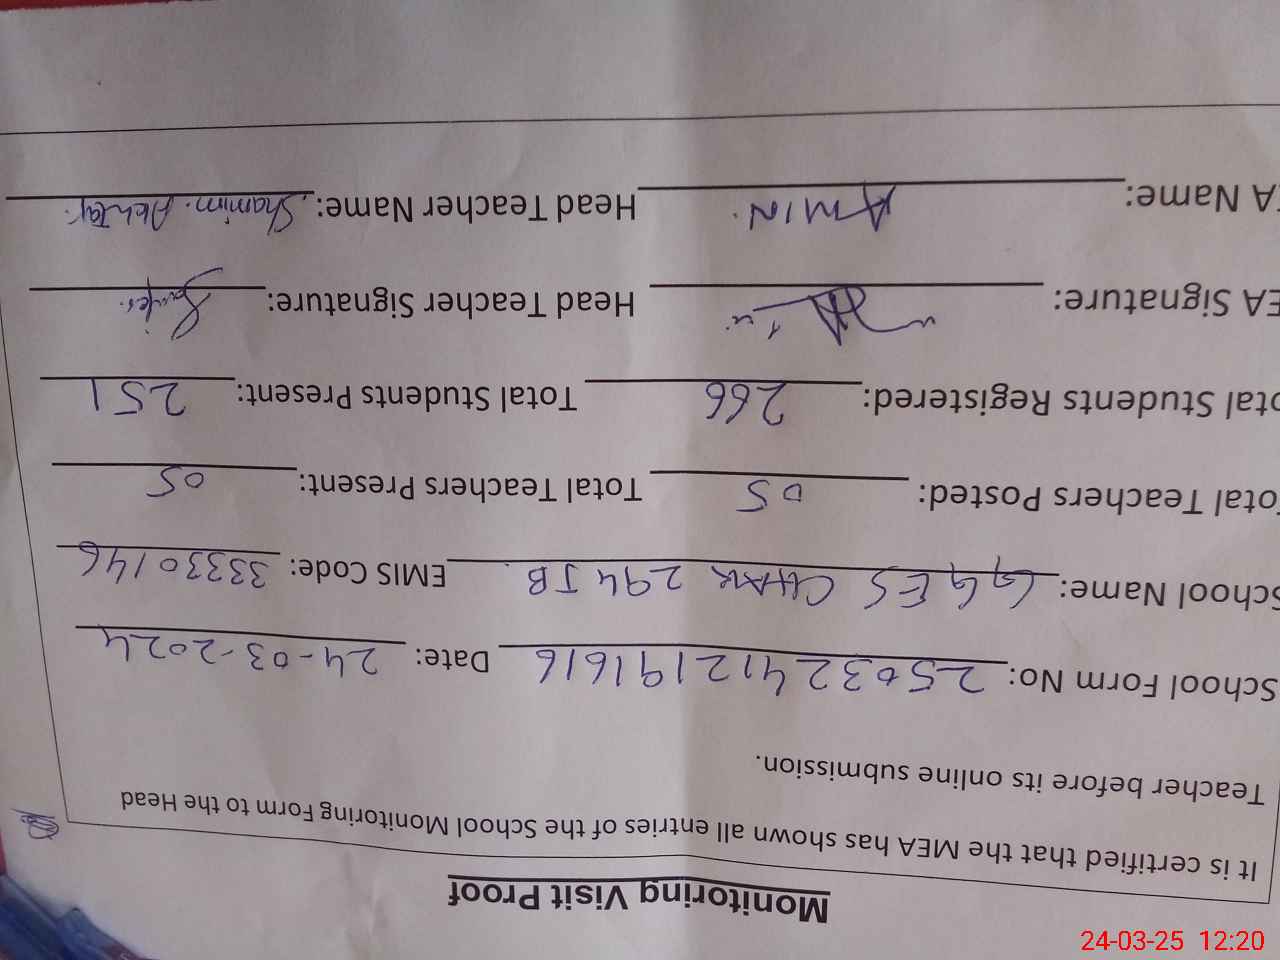 Monitoring Visit Proof
It is certified that the MEA has shown all entries of the School Monitoring Form to the Head
Teacher before its online submission.
School Form No: 25032412191616 Date: 24-03-2024
School Name: GGES CHAK 294 JB. EMIS Code: 33330146
Total Teachers Posted: 05 Total Teachers Present: 05
Total Students Registered: 266 Total Students Present: 251
EA Signature: Head Teacher Signature:
EA Name: AMIN. Head Teacher Name: Shamim. Akhtar.
24-03-25 12:20